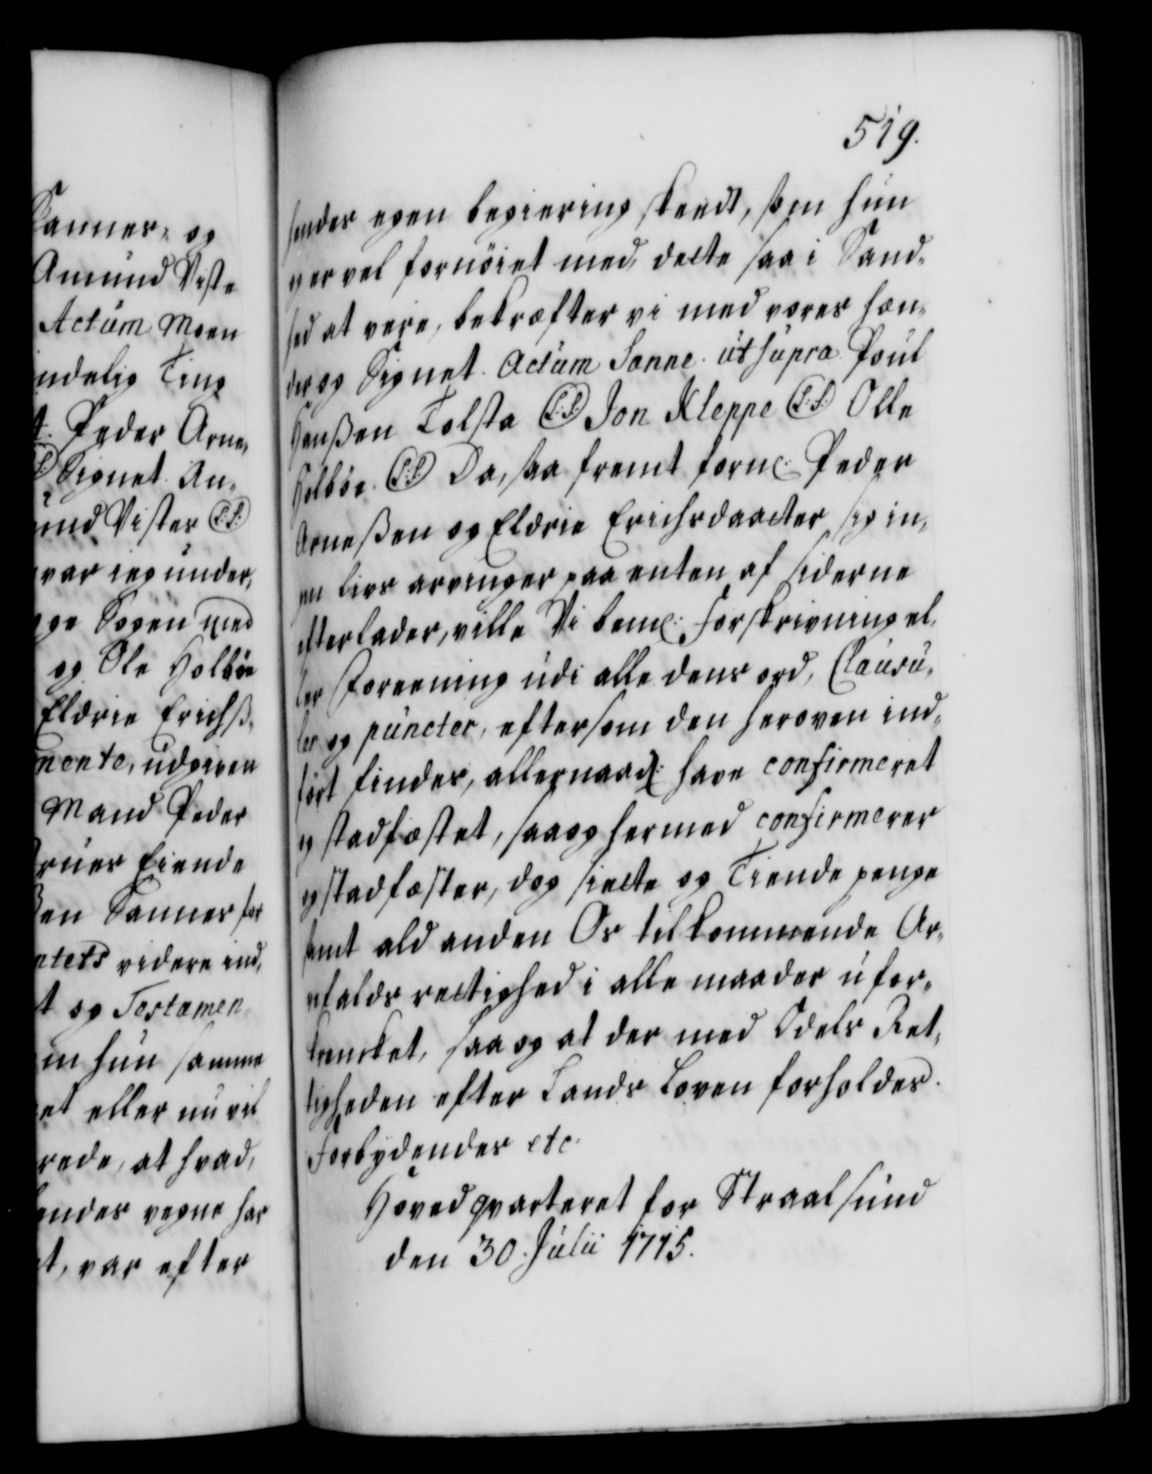 519.
Sanner, og
Amund Viste
Actum Moen
indelig Ting
Peder Arne,
Signet. An,
und Vister (L:S)
var ieg under,
Sogen med
og Ole Holbøe
Eldrie Erichß,
mente, udgiven
Mand Peder
Fiende
ßen Sanner for
ntets videre ind,
t og Testamen
m hun samme
et eller nu vil
rede, at hvad,
endes vegne har
t, var efter
hendes egen begiering skeedt, som hun
og er vel fornöiet med, dette saa i Sand,
hed at vere, bekræfter vi med vores hæn,
der og Signet. Actum Sonne ut supra Poul
Hanßen Tolsta (L:S) Jon Kleppe (L:S) Olle
Holböe. (L:S) Da, saa fremt forne: Peder
Arneßen og Eldrie Erichsdaatter sig in,
gen livs arvinger paa enten af siderne
efterlader, ville Vi bemte: Forskrivning el,
ler Foreening udi alle dens ord, Clausu,
ler og puncter, eftersom den heroven ind,
fört findes, allernaad: have confirmeret
og stadfæstet, saa og hermed confirmerer
og stadfæster, dog siette og Tiende penge
samt ald anden Os tilkommende Ar,
vefalds rettighed i alle maader ufor,
krencket, saa og at der med Odels Ret,
tigheden efter Lands Loven forholdes.
Forbydendes etc.
Hovedqvarteret for Straalsund
den 30. Julii 1715.